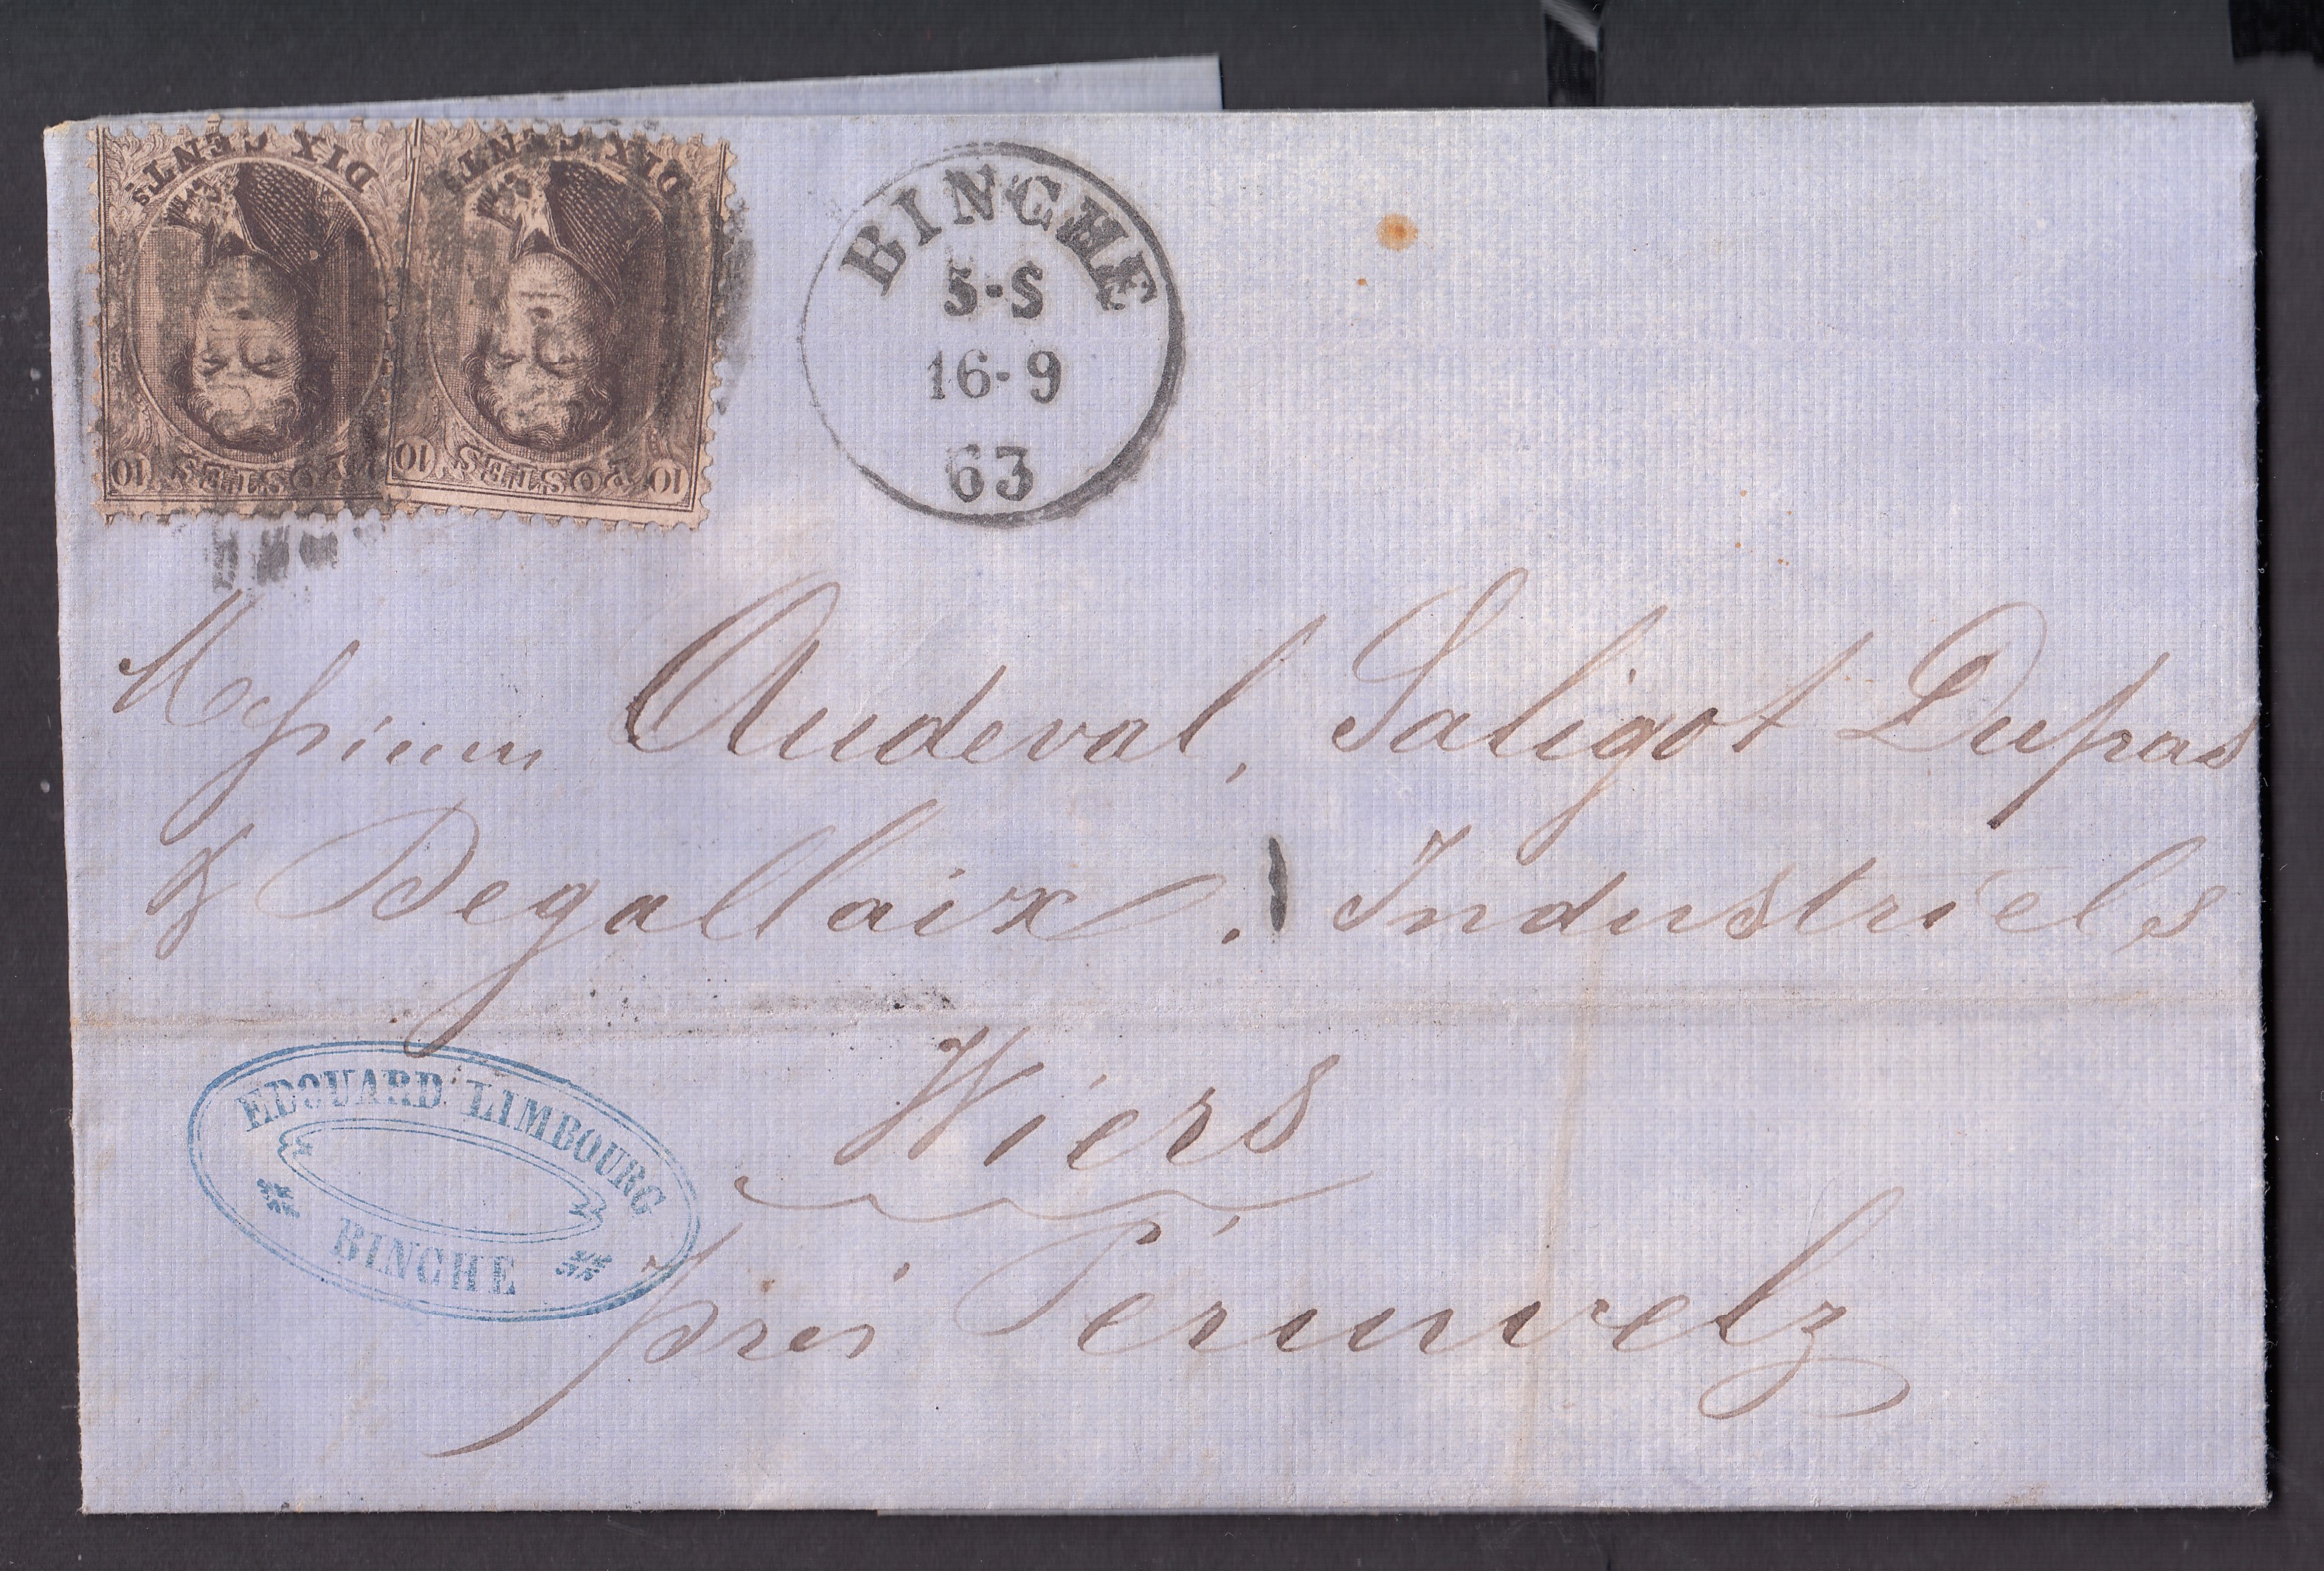 DIX CENTS
POSTES
10 10
DIX CENTS
POSTES
10 10
BINCHE
5-S
16-9
63
Messieurs Audeval, Saligot Dupas
& Degallaix. Industriels
Wiers
près Péruwelz
EDOUARD LIMBOURG
BINCHE